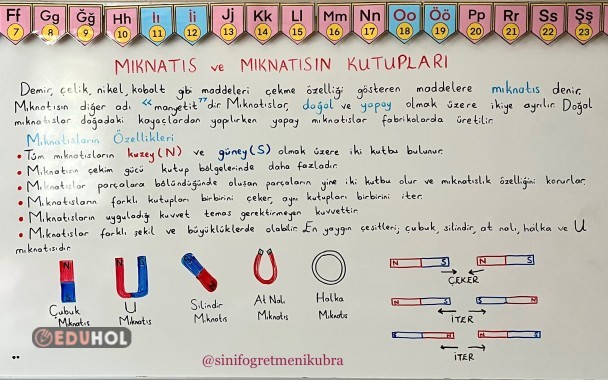 Ff Gg Ğğ Hh Iı İi Jj Kk Ll Mm Nn Oo Öö Pp Rr Ss Şş
7 8 9 10 11 12 13 14 15 16 17 18 19 20 21 22 23
MIKNATIS ve MIKNATISIN KUTUPLARI
Demir, çelik, nikel, kobalt gibi maddeleri çekme özelliği gösteren maddelere mıknatıs denir.
Mıknatısın diğer adı "manyetit" dir. Mıknatıslar, doğal ve yapay olmak üzere ikiye ayrılır. Doğal
mıknatıslar doğadaki kayaçlardan yapılırken yapay mıknatıslar fabrikalarda üretilir.
Mıknatısların Özellikleri
• Tüm mıknatısların kuzey (N) ve güney (S) olmak üzere iki kutbu bulunur.
• Mıknatısın çekim gücü kutup bölgelerinde daha fazladır.
• Mıknatıslar parçalara bölündüğünde oluşan parçaların yine iki kutbu olur ve mıknatıslık özelliğini korurlar.
• Mıknatısların farklı kutupları birbirini çeker, aynı kutupları birbirini iter.
• Mıknatısların uyguladığı kuvvet temas gerektirmeyen kuvvettir.
• Mıknatıslar farklı şekil ve büyüklüklerde olabilir. En yaygın çeşitleri; çubuk, silindir, at nalı, halka ve U
mıknatısıdır.
N
Çubuk Mıknatıs
U Mıknatıs
Silindir Mıknatıs
At Nalı Mıknatıs
Halka Mıknatıs
N S N S
ÇEKER
N S S N
İTER
S N N S
İTER
EDUHOL
@sinifogretmenikubra